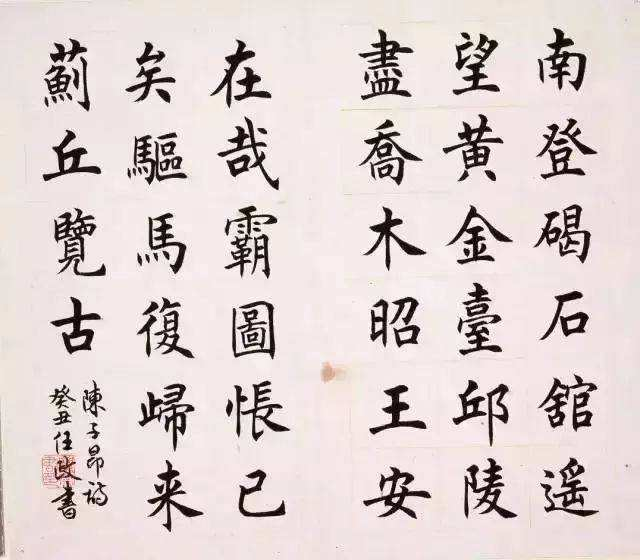 南登碣石館遥
望黄金臺邱陵
盡喬木昭王安
在哉霸圖悵已
矣驅馬復歸来
薊丘覽古
陳子昂詩
癸丑任政書